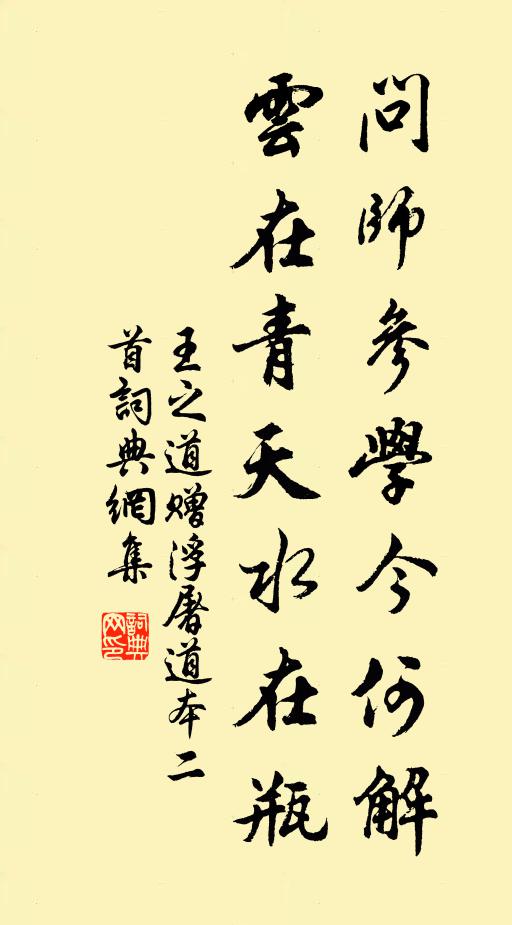 問師參學今何解
雲在青天水在瓶
王之道贈浮屠道本二
首詞典網集
詞典
网印